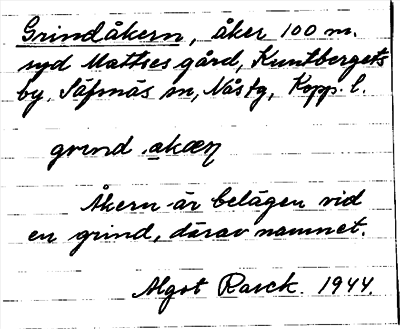 Grindåkern, åker 100 m.
syd Mattses gård, Kuntbergets
by, Säfsnäs sn, Nås tg, Kopp. l.
grind akæn
Åkern är belägen vid
en grind, därav namnet.
Algot Rasck. 1944.